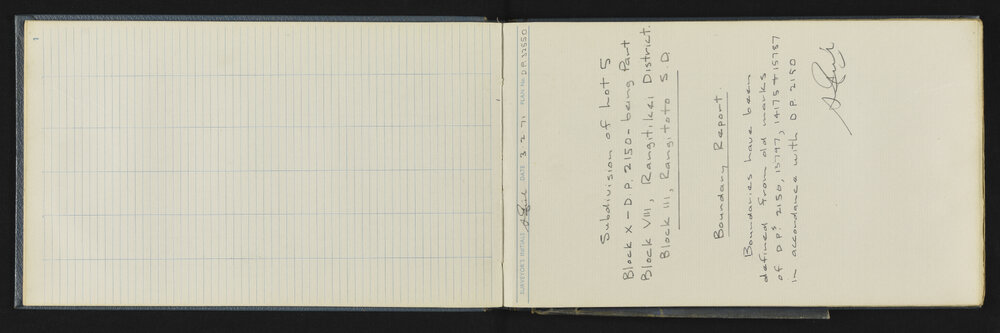 1
SURVEYOR'S INITIALS DATE 3.2.71 PLAN No. D.P. 32550
Subdivision of Lot 5
Block X - D.P. 2150 - being Part
Block VIII, Rangitikei District.
Block III, Rangitoto S.D.
Boundary Report.
Boundaries have been
defined from old marks
of D.Pˢ 2150, 15797, 14175 & 15787
in accordance with D.P. 2150